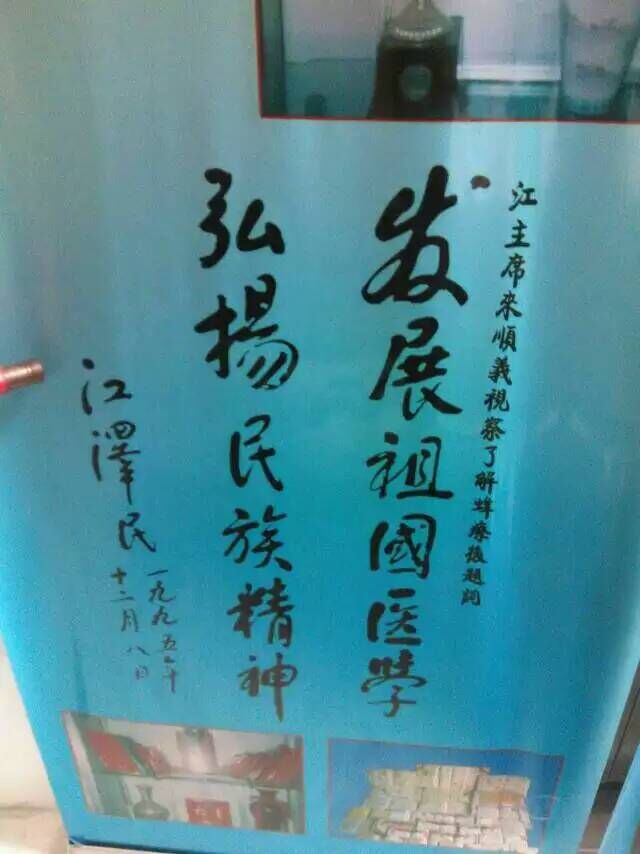 江主席来順義視察了解蜂療後題詞
发展祖國医学
弘揚民族精神
江澤民
一九九五年
十二月八日